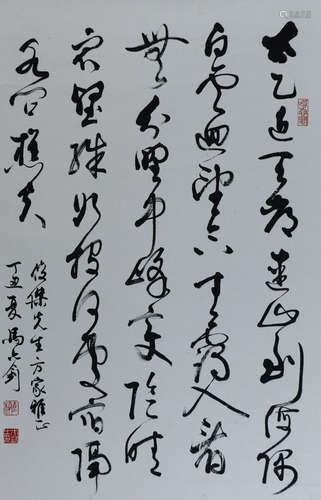 太乙近天都連山到海隅
白雲迴望合青靄入看
無分野中峰變陰晴
衆壑殊欲投何處宿隔
水問樵夫
俊傑先生方家雅正
丁丑夏馮